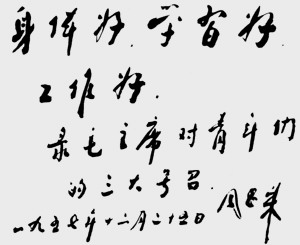 身体好.学习好.
工作好.
录毛主席对青年们
的三大号召.周恩来
一九五七年十二月二十五日